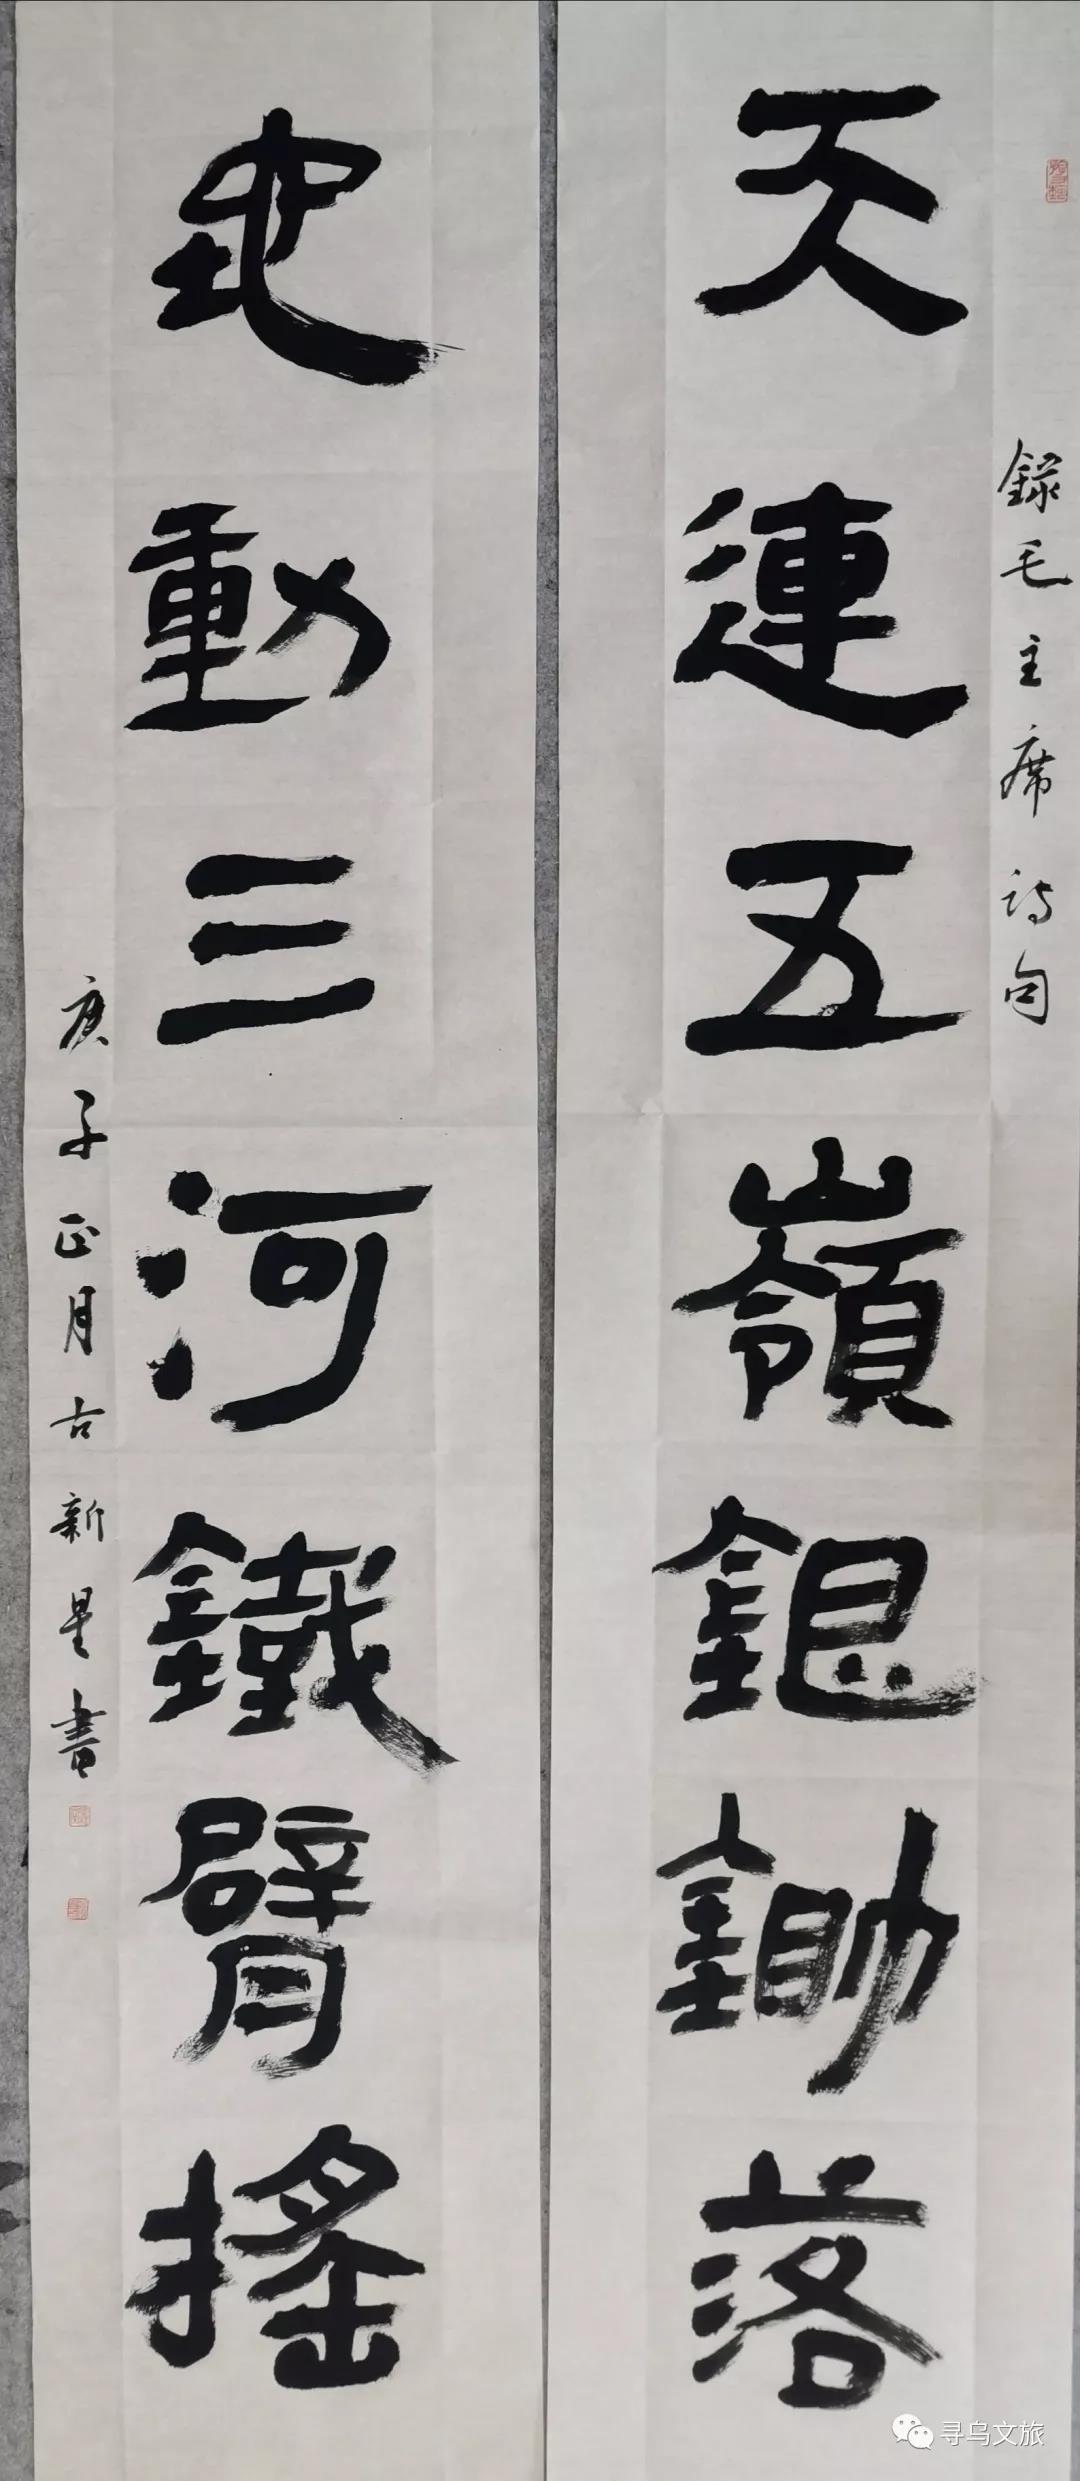 錄毛主席诗句
天連五嶺銀鋤落
地動三河鐵臂搖
庚子正月古新星書
寻乌文旅